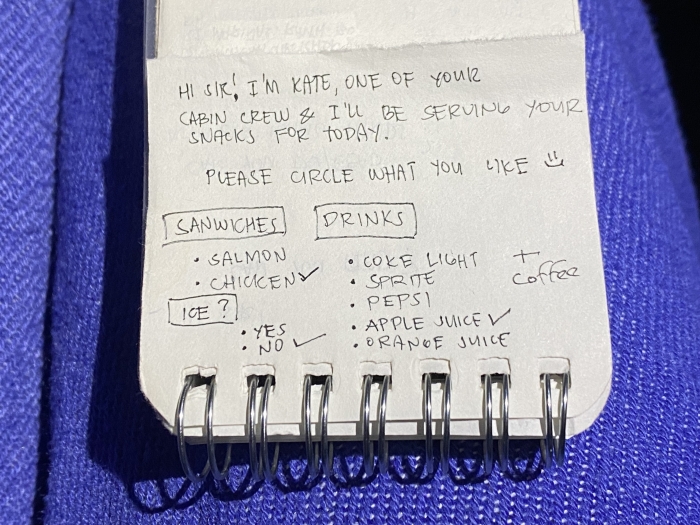 HI SIR! I'M KATE, ONE OF YOUR
CABIN CREW & I'LL BE SERVING YOUR
SNACKS FOR TODAY.
PLEASE CIRCLE WHAT YOU LIKE
SANWICHES
• SALMON
• CHICKEN ✓
ICE?
• YES
• NO ✓
DRINKS
• COKE LIGHT
• SPRITE
• PEPSI
• APPLE JUICE ✓
• ORANGE JUICE
+
Coffee